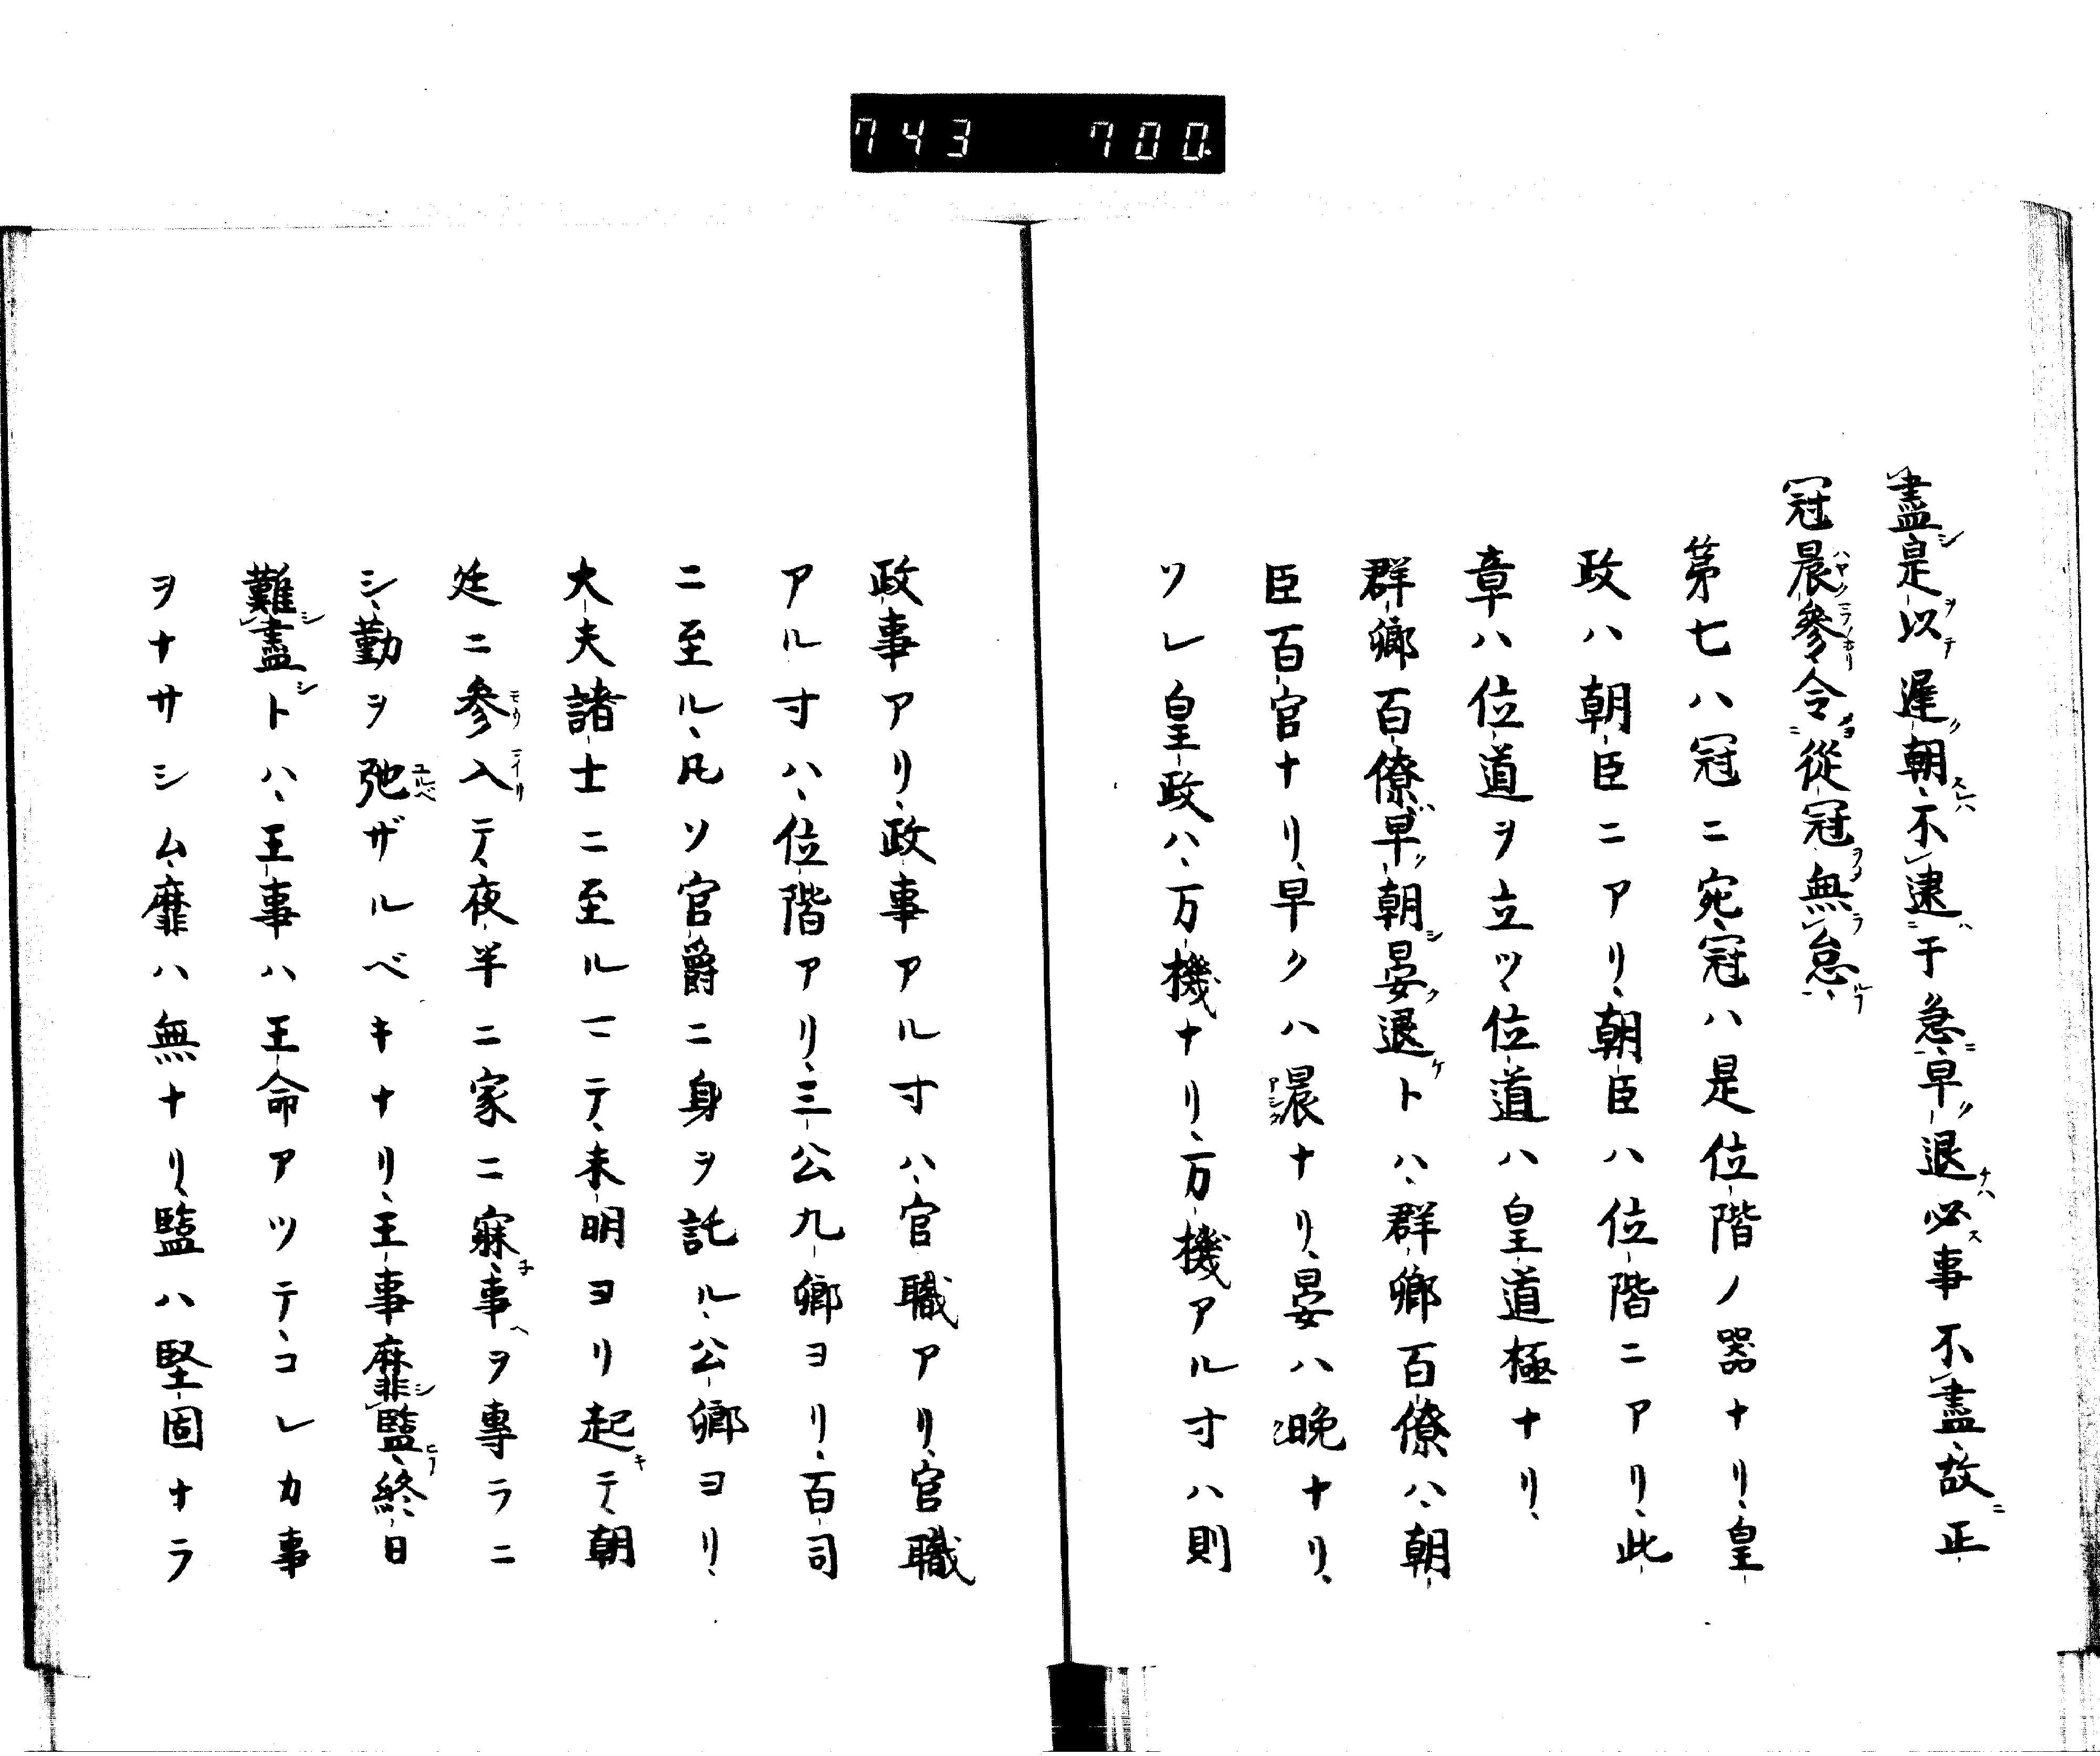 743 700.
盡是以遲朝不逮于急早退必事不盡故正
冠晨參令從冠無怠
第七ハ冠ニ宛冠ハ是位階ノ器ナリ、皇
政ハ朝臣ニアリ、朝臣ハ位階ニアリ、此
章ハ位道ヲ立ツ、位道ハ皇道極ナリ、
群卿百僚早朝晏退トハ、群卿百僚ハ、朝
臣百官ナリ、早クハ晨ナリ、晏ハ晩ナリ、
ソレ皇政ハ、万機ナリ、万機アル寸ハ則
政事アリ、政事アル寸ハ、官職アリ、官職
アル寸ハ、位階アリ、三公九卿ヨリ、百司
ニ至ル、凡ソ官爵ニ身ヲ託ル、公卿ヨリ、
大夫諸士ニ至ルマテ、未明ヨリ起テ、朝
廷ニ參入テ、夜半ニ家ニ寐、事ヲ專ラニ
シ、勤ヲ弛ザルベキナリ、王事靡盬、終日
難盡トハ、王事ハ王命アツテ、コレカ事
ヲナサシム、靡ハ無ナリ、盬ハ堅固ナラ